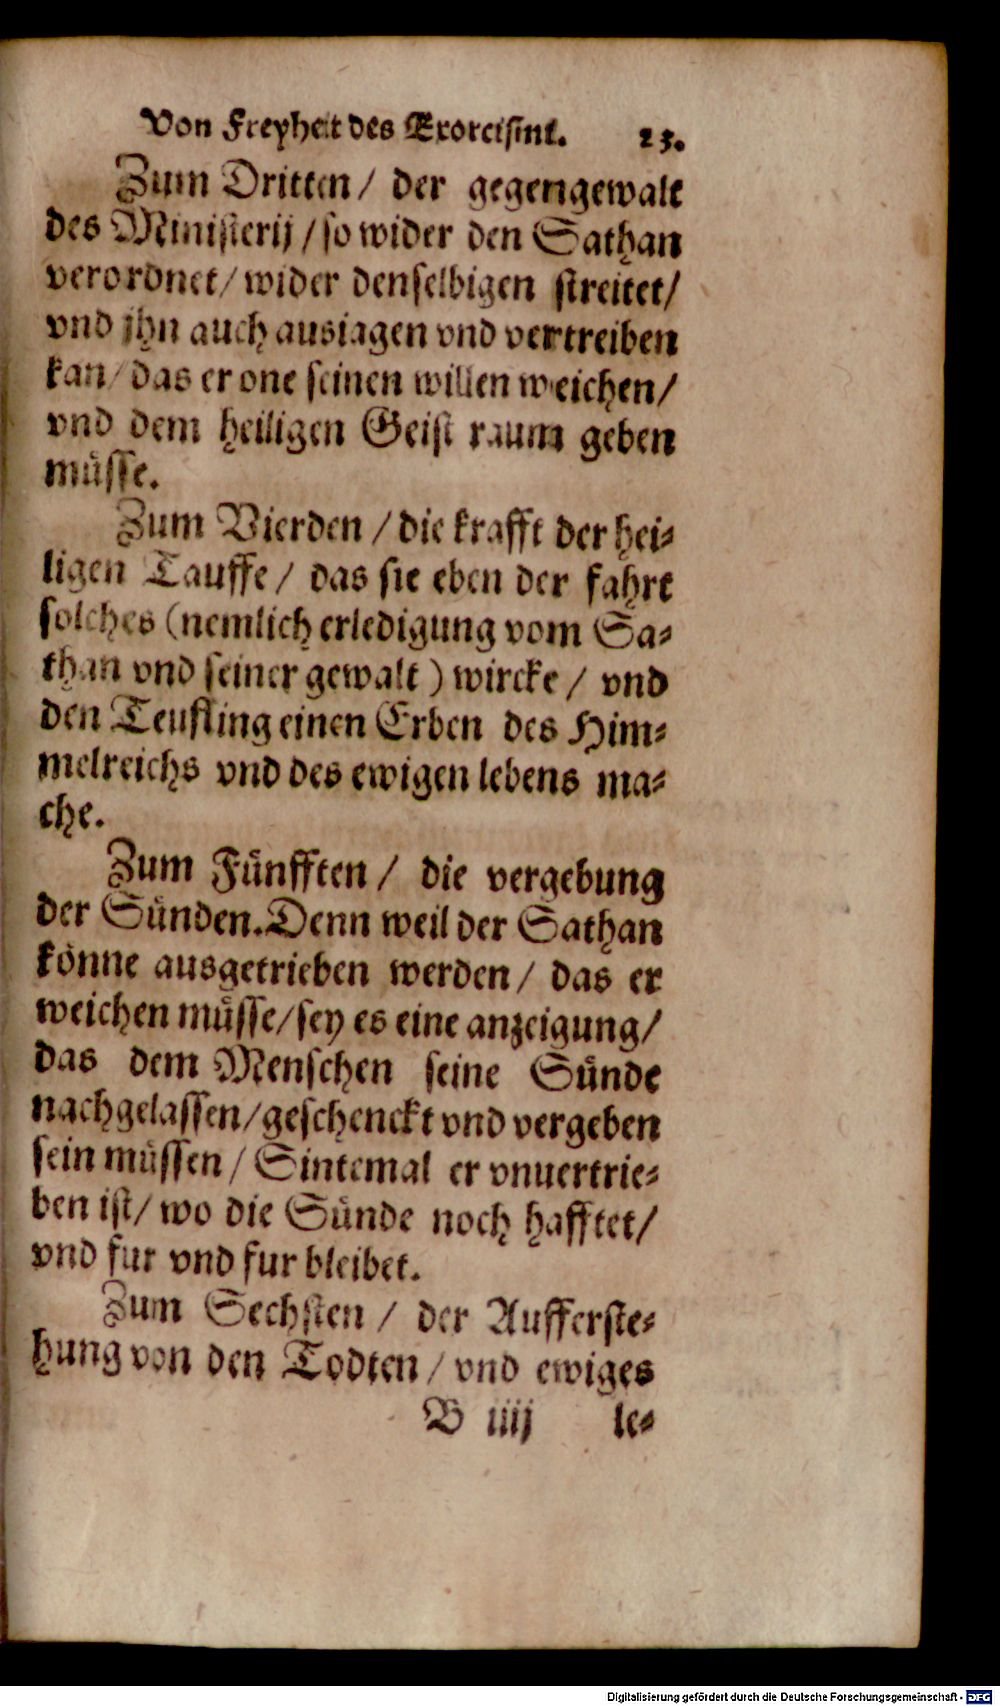 Von Freyheit des Exorcismi. 23.
Zum Dritten / der gegengewalt
des Ministerij / so wider den Sathan
verordnet / wider denselbigen streitet /
vnd jhn auch ausiagen vnd vertreiben
kan / das er one seinen willen weichen /
vnd dem heiligen Geist raum geben
müsse.
Zum Vierden / die krafft der hei-
ligen Tauffe / das sie eben der fahrt
solches (nemlich erledigung vom Sa-
than vnd seiner gewalt) wircke / vnd
den Teufling einen Erben des Him-
melreichs vnd des ewigen lebens ma-
che.
Zum Fünfften / die vergebung
der Sünden. Denn weil der Sathan
könne ausgetrieben werden / das er
weichen müsse / sey es eine anzeigung /
das dem Menschen seine Sünde
nachgelassen / geschenckt vnd vergeben
sein müssen / Sintemal er vnuertrie-
ben ist / wo die Sünde noch hafftet /
vnd fur vnd fur bleibet.
Zum Sechsten / der Aufferste-
hung von den Todten / vnd ewiges
B iiij le-
Digitalisierung gefördert durch die Deutsche Forschungsgemeinschaft - DFG